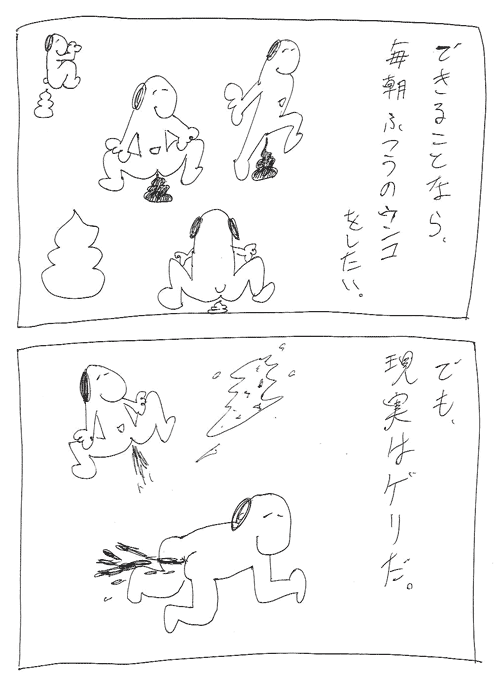 できることなら、
毎朝ふつうのウンコ
をしたい。
でも、
現実はゲリだ。